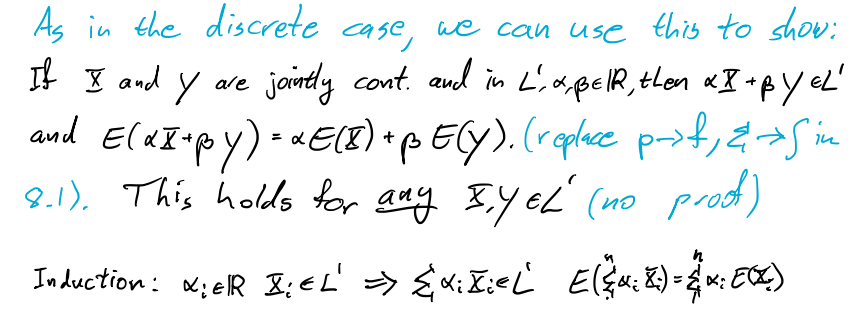 As in the discrete case, we can use this to show:
If X and Y are jointly cont. and in L¹, α,β∈ℝ, then αX+βY∈L¹
and E(αX+βY) = αE(X)+βE(Y). (replace p→f, Σ→∫ in
8.1). This holds for any X,Y∈L¹ (no proof)
Induction: αᵢ∈ℝ Xᵢ∈L¹ ⇒ Σ₁ⁿ αᵢXᵢ∈L¹ E(Σ₁ⁿ αᵢXᵢ)=Σ₁ⁿ αᵢE(Xᵢ)